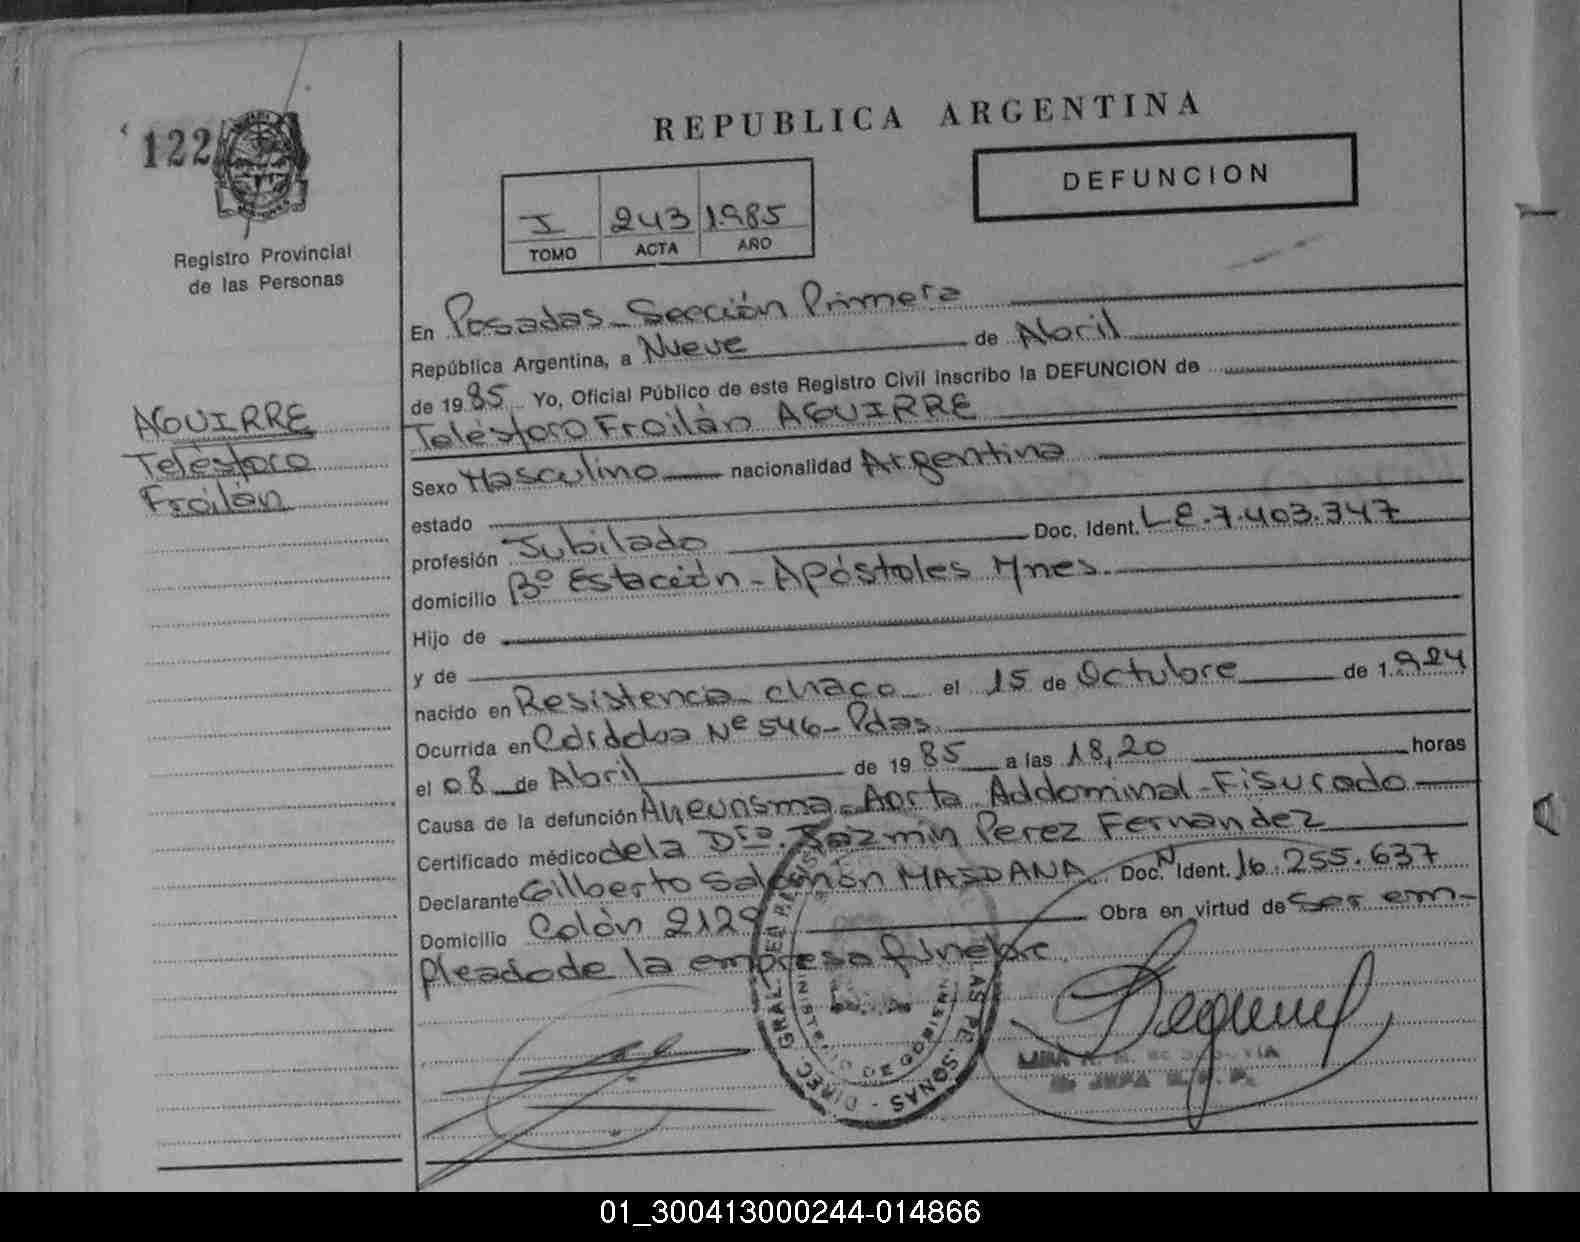 122
Registro Provincial
de las Personas
REPUBLICA ARGENTINA
DEFUNCION
I 243 1985
TOMO ACTA AÑO
AGUIRRE
Telésforo
Froilán
En Posadas - Sección Primera
República Argentina, a Nueve de Abril
de 1985 Yo, Oficial Público de este Registro Civil inscribo la DEFUNCION de
Telésforo Froilán AGUIRRE
Sexo Masculino nacionalidad Argentina
estado
profesión Jubilado Doc. Ident. L.E. 7.403.347
domicilio Bº Estación - Apóstoles Mnes.
Hijo de
y de
nacido en Resistencia - Chaco el 15 de Octubre de 1.924
Ocurrida en Córdoba Nº 546 - Pdas.
el 08 de Abril de 1985 a las 18,20 horas
Causa de la defunción Aneurisma - Aorta Addominal - Fisurado
Certificado médico de la Dra. Jazmin Perez Fernandez
Declarante Gilberto Salomón Doc. N Ident. 16.255.637
Domicilio Colón 2129 Obra en virtud de Ser em-
pleado de la empresa fúnebre.
DIREC. GRAL. DE GOBIERNO
01_300413000244-014866